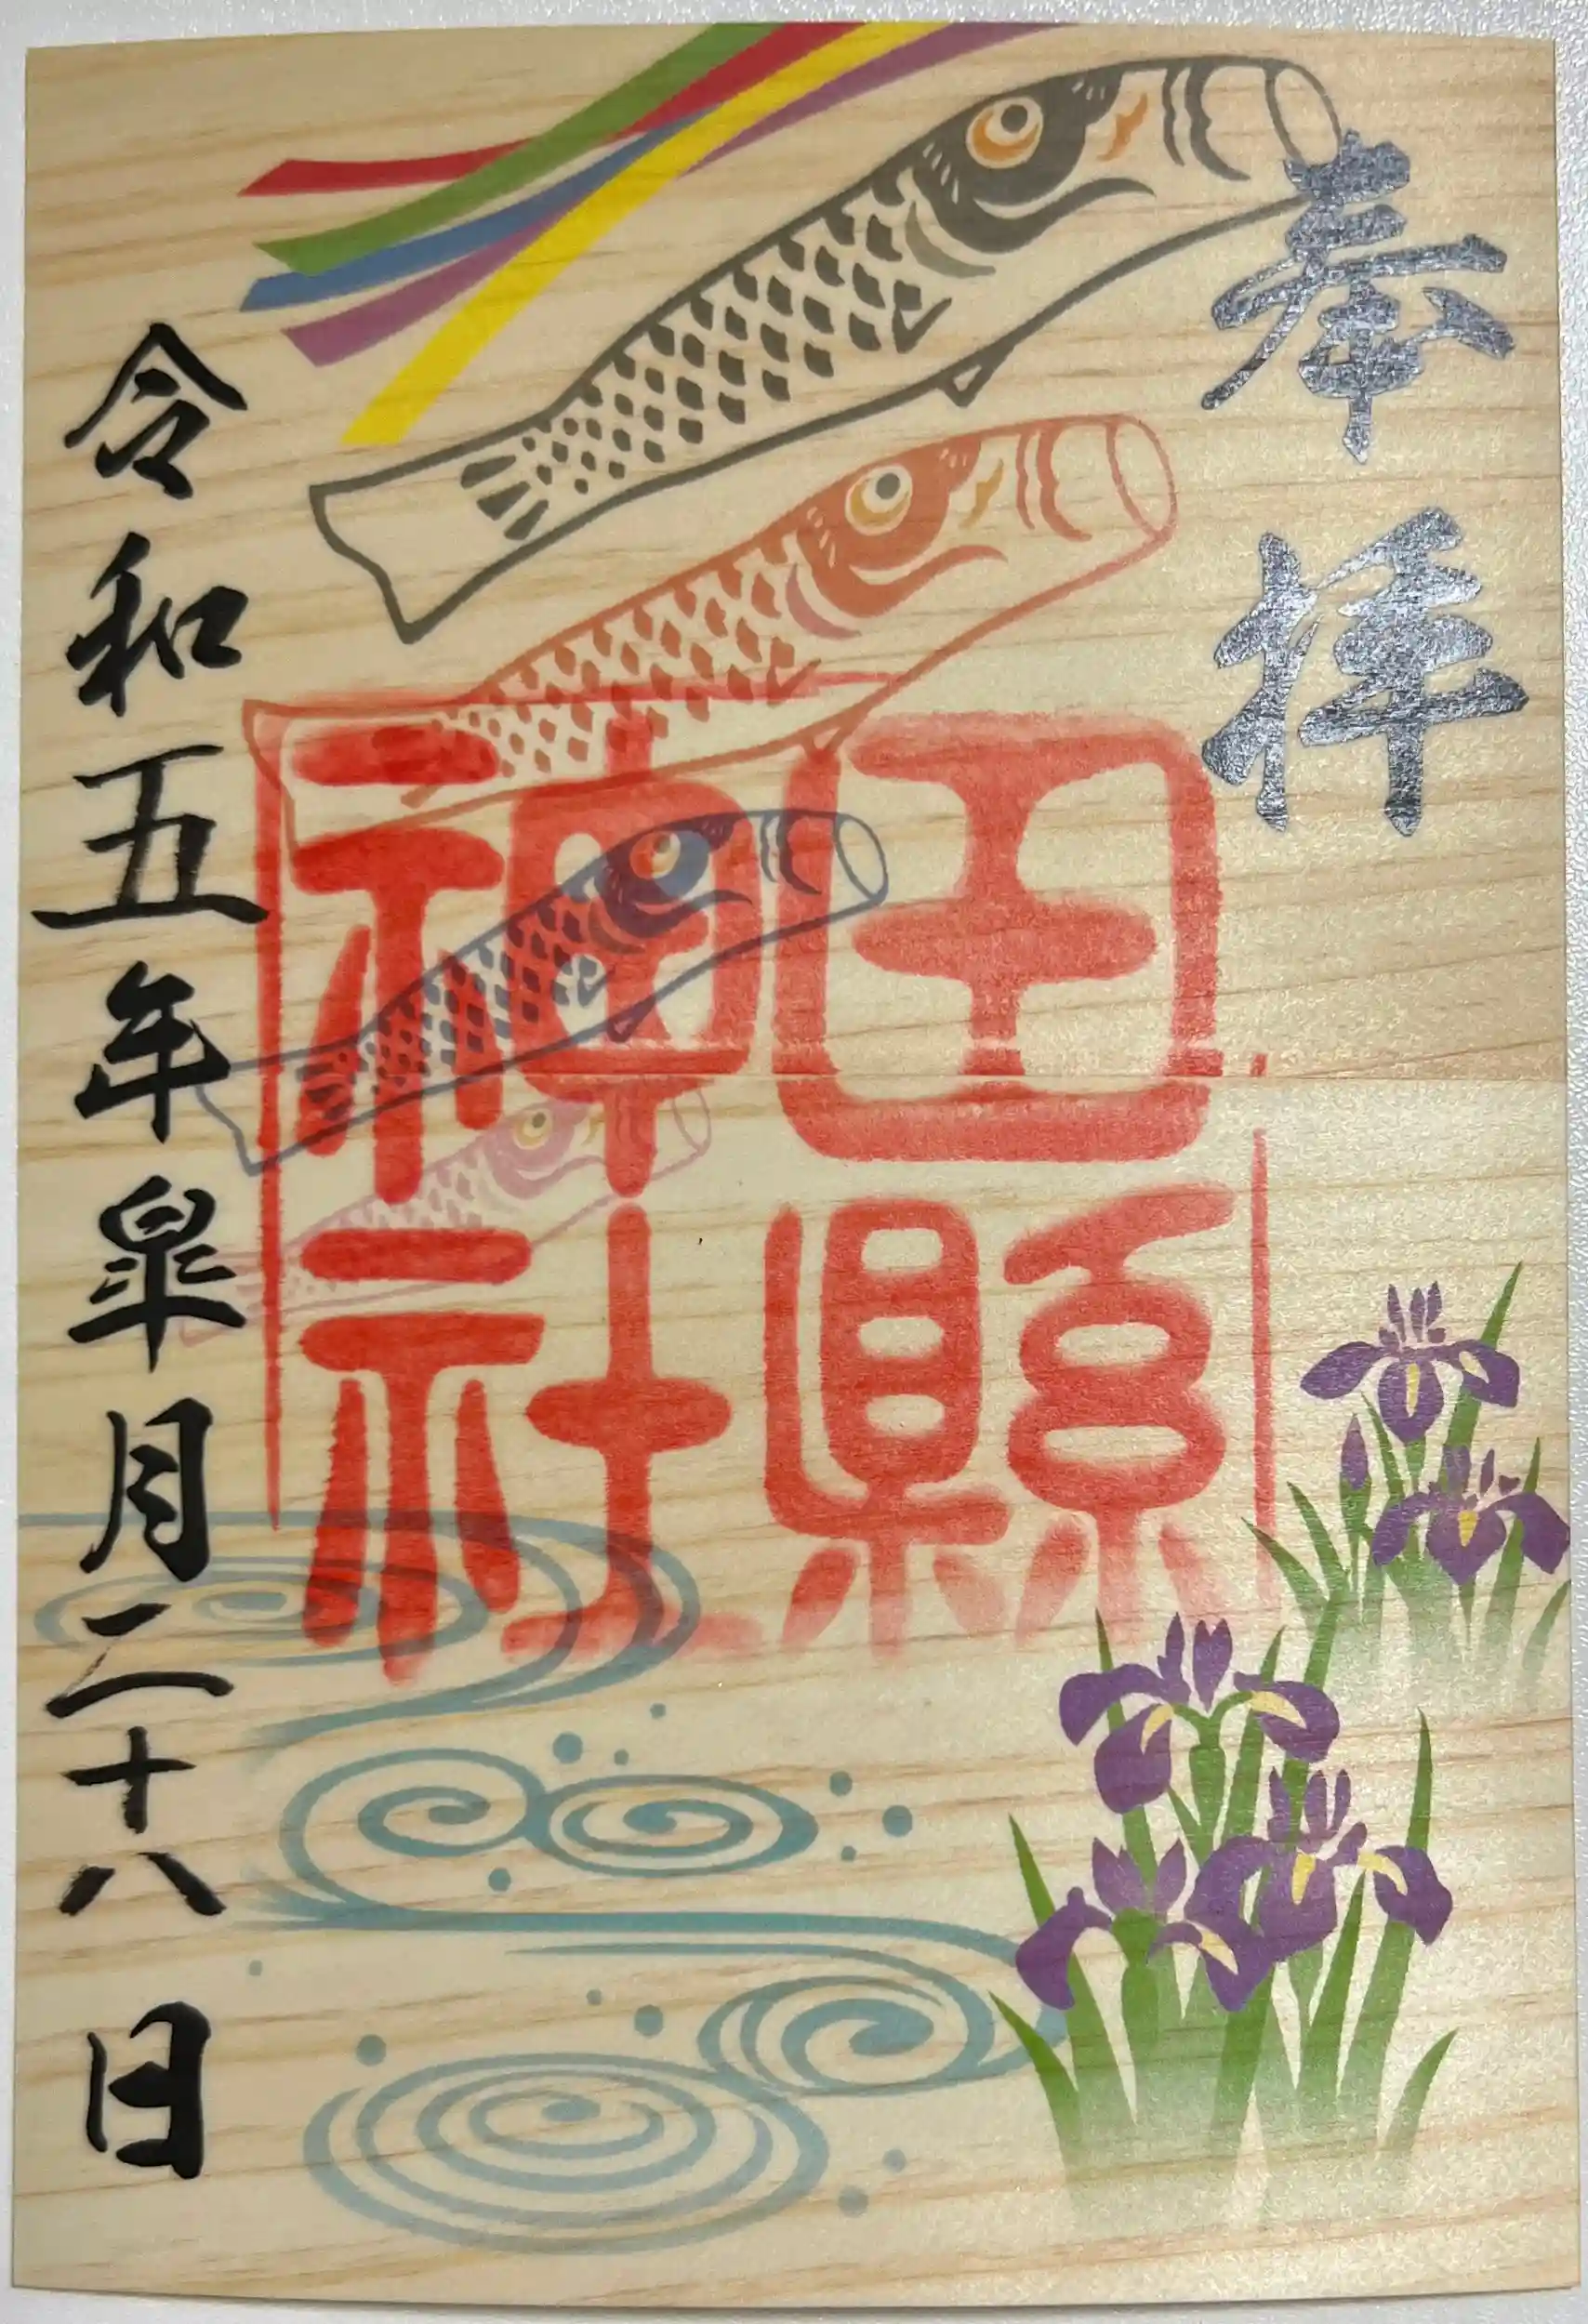 奉拝
田縣
神社
令和五年皐月二十八日